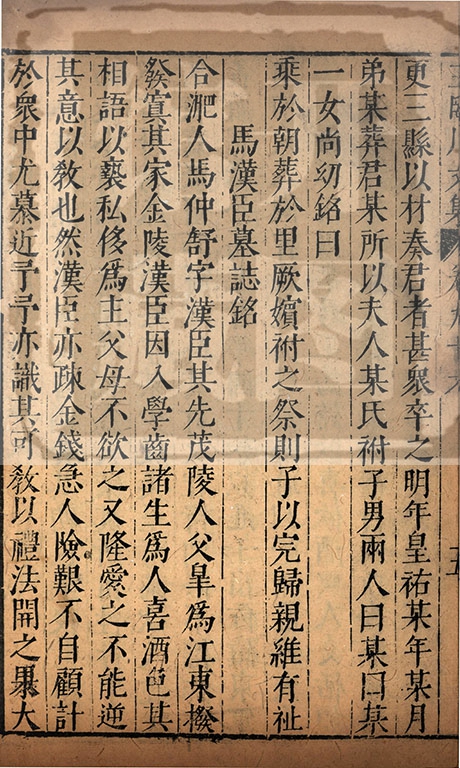 更三縣以材奏君者甚衆卒之明年皇祐某年某月
弟某葬君某所以夫人某氏祔子男兩人曰某曰某
一女尚幼銘曰
乘於朝葬於里厥嬪祔之祭則子以完歸親維有祉
馬漢臣墓誌銘
合淝人馬仲舒字漢臣其先茂陵人父皐爲江東撥
發寘其家金陵漢臣因入學齒諸生爲人喜酒色其
相語以褻私侈爲主父母不欲之又隆愛之不能逆
其意以敎也然漢臣亦疎金錢急人險艱不自顧計
於衆中尤慕近予予亦識其可敎以禮法開之果大